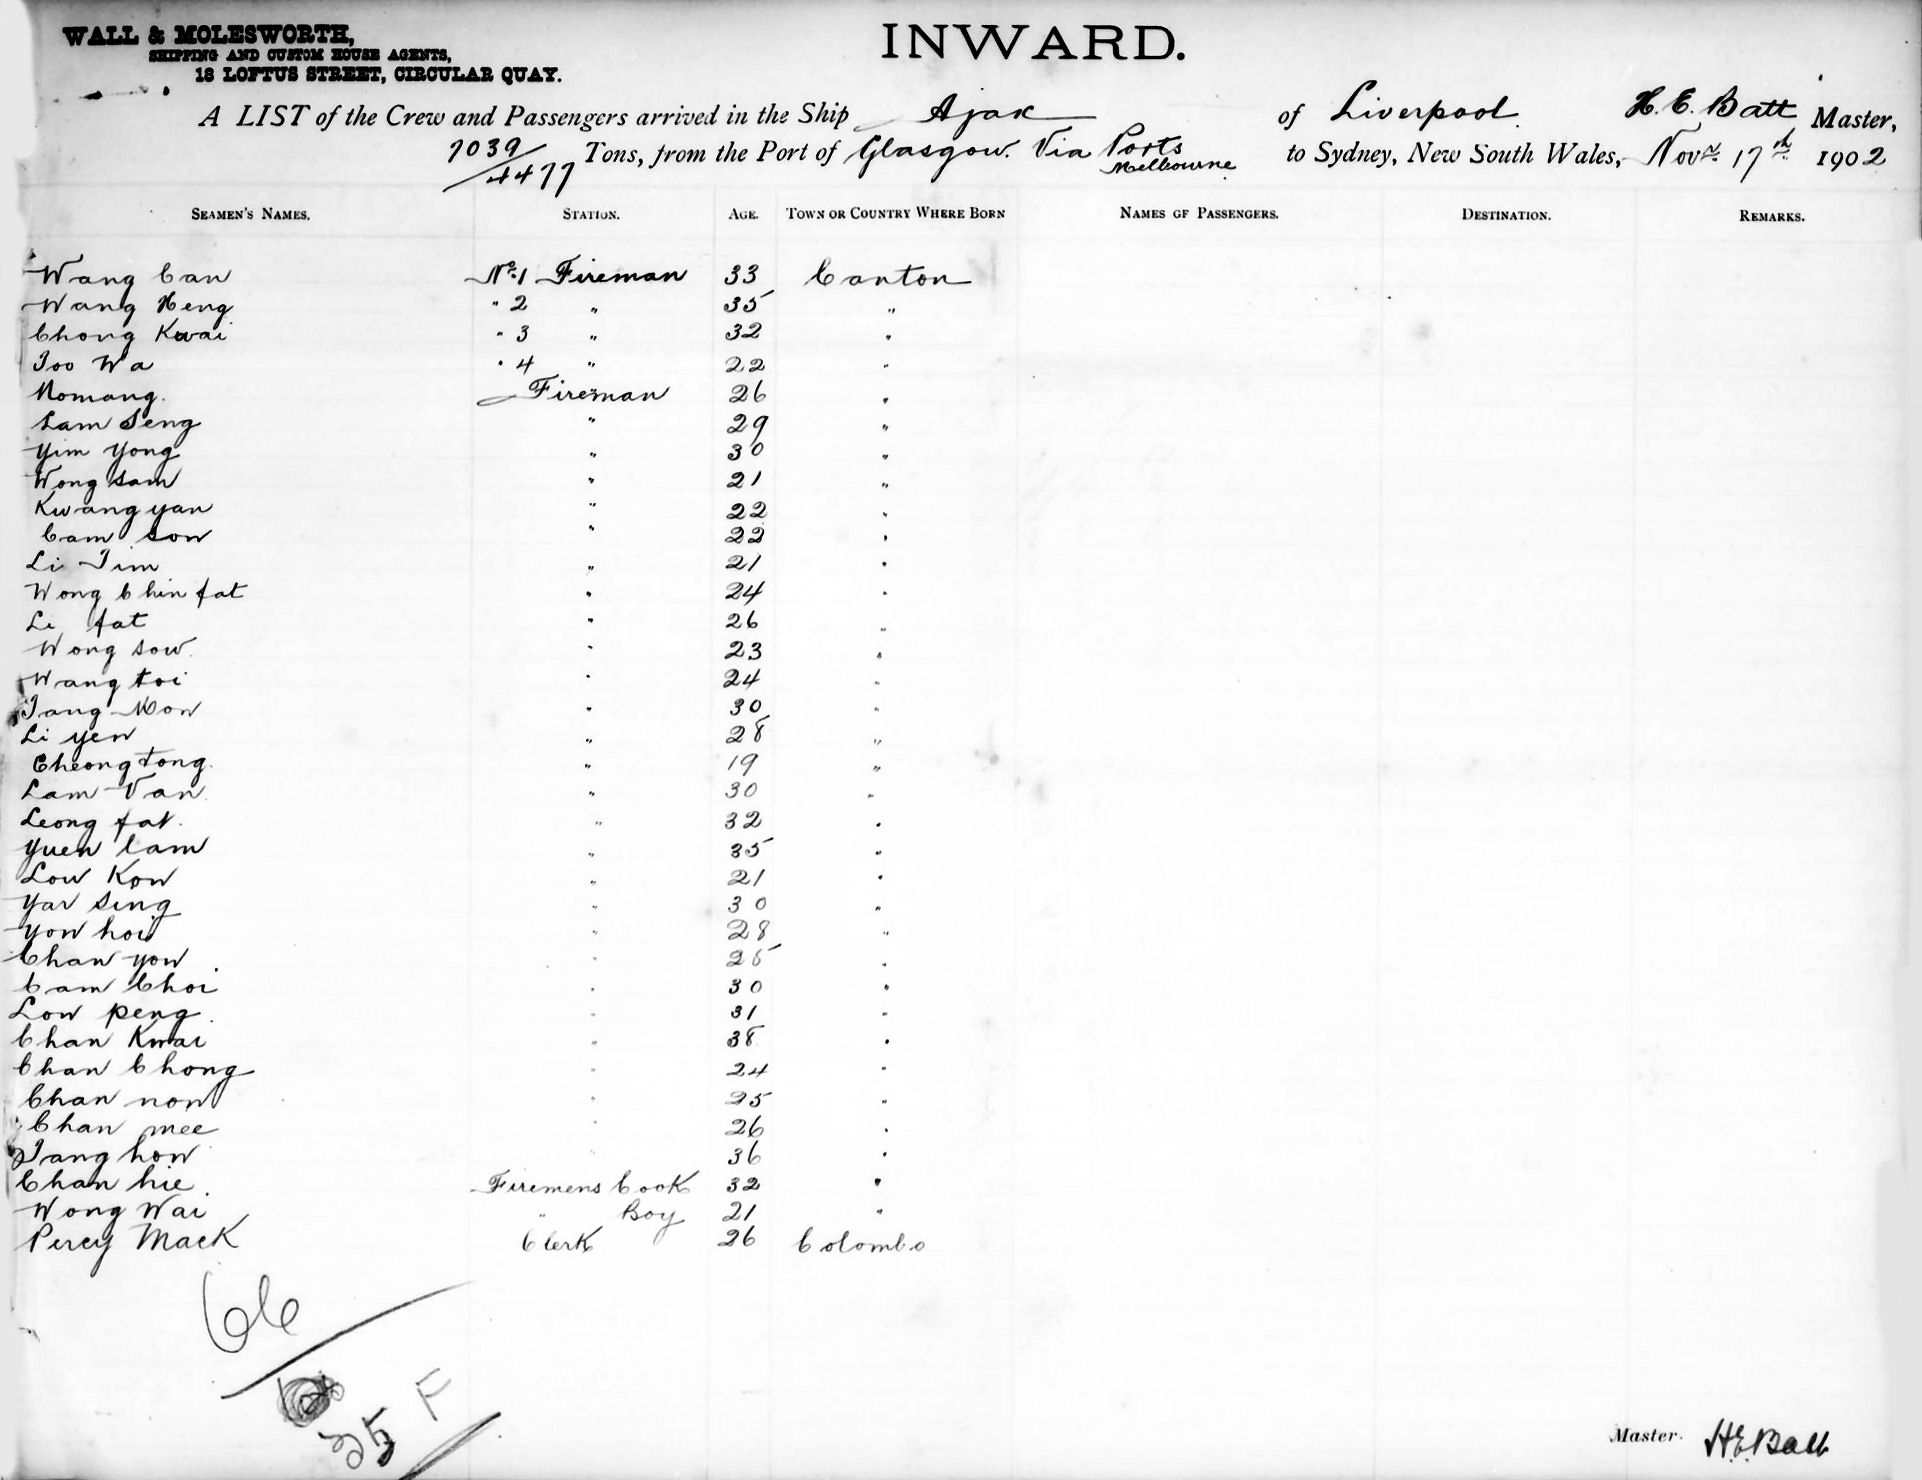 WALL & MOLESWORTH,
SHIPPING AND CUSTOM HOUSE AGENTS,
18 LOFTUS STREET, CIRCULAR QUAY.
INWARD.
A LIST of the Crew and Passengers arrived in the Ship Ajax of Liverpool H. E. Batt Master,
7039/4477 Tons, from the Port of Glasgow. Via Ports Melbourne to Sydney, New South Wales, Novr. 17th 1902
SEAMEN'S NAMES. STATION. AGE. TOWN OR COUNTRY WHERE BORN NAMES OF PASSENGERS. DESTINATION. REMARKS.
Wang Can No. 1 Fireman 33 Canton
Wang Heng " 2 " 35 "
Chong Kwai " 3 " 32 "
Too Wa " 4 " 22 "
Fireman 26 "
Lam Seng " 29 "
Yim Yong " 30 "
Wong Sam " 21 "
Kwang yan " 22 "
Cam Son " 22 "
Li Tim " 21 "
Wong Chin fat " 24 "
Li fat " 26 "
Wong sow " 23 "
Wang toi " 24 "
Tang Mon " 30 "
Li yen " 28 "
Cheong tong. " 19 "
Lam Van " 30 "
Leong fat. " 32 "
Yuen lam " 35 "
Low Kow " 21 "
Yar Sing " 30 "
Yow hoi " 28 "
Chan yow " 25 "
Cam Choi " 30 "
Low peng " 31 "
Chan Kwai " 38 "
Chan Chong " 24 "
Chan now " 25 "
Chan mee " 26 "
Tang how 36 "
Chan hie Firemens Cook 32 "
Wong Wai " Boy 21 "
Percy Mack Clerk 26 Colombo
66
35 F
Master. H.E. Batt